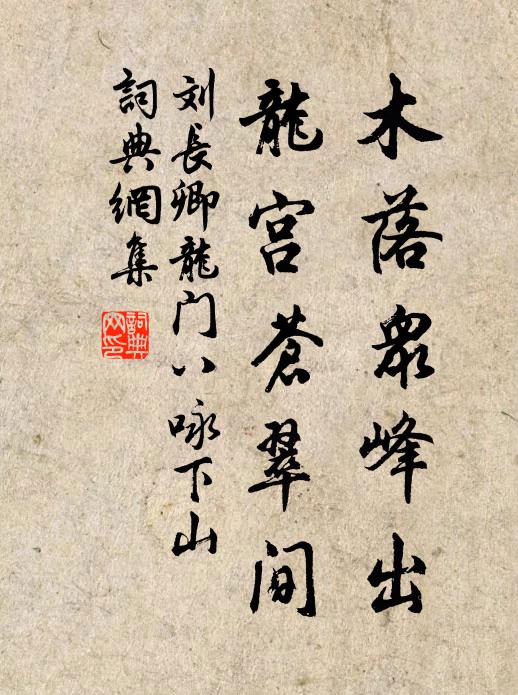 木落眾峰出
龍宮蒼翠間
刘長卿龍门八咏下山
詞典網集
詞典网印